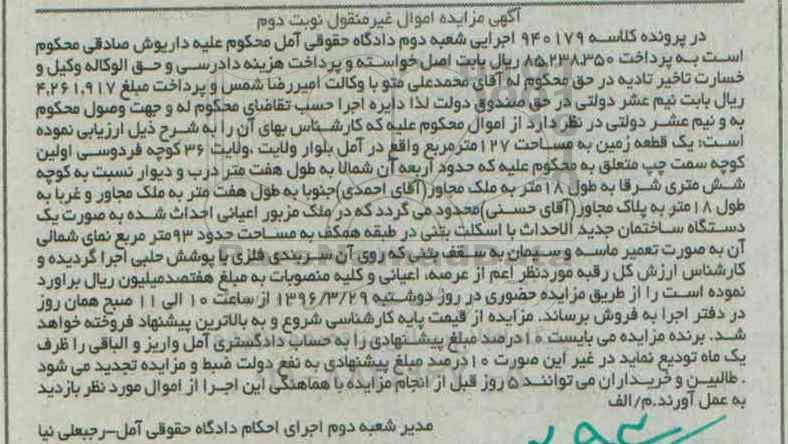 آگهی مزایده اموال غیرمنقول نوبت دوم
در پرونده کلاسه ۹۴۰۱۷۹ اجرایی شعبه دوم دادگاه حقوقی آمل محکوم علیه داریوش صادقی محکوم
است به پرداخت ۸۵,۲۳۸,۳۵۰ ریال بابت اصل خواسته و پرداخت هزینه دادرسی و حق الوکاله وکیل و
خسارت تاخیر تادیه در حق محکوم له آقای محمدعلی متو با وکالت امیررضا شمس و پرداخت مبلغ ۴,۲۶۱,۹۱۷
ریال بابت نیم عشر دولتی در حق صندوق دولت لذا دایره اجرا حسب تقاضای محکوم له و جهت وصول محکوم
به و نیم عشر دولتی در نظر دارد از اموال محکوم علیه که کارشناس بهای آن را به شرح ذیل ارزیابی نموده
است: یک قطعه زمین به مساحت ۱۲۷ مترمربع واقع در آمل بلوار ولایت ،ولایت ۳۶ کوچه فردوسی اولین
کوچه سمت چپ متعلق به محکوم علیه که حدود اربعه آن شمالا به طول هفت متر درب و دیوار نسبت به کوچه
شش متری شرقا به طول ۱۸ متر به ملک مجاور(آقای احمدی)جنوبا به طول هفت متر به ملک مجاور و غربا به
طول ۱۸ متر به پلاک مجاور(آقای حسنی)محدود می گردد که در ملک مزبور اعیانی احداث شده به صورت یک
دستگاه ساختمان جدید الاحداث با اسکلت بتنی در طبقه همکف به مساحت حدود ۹۳ متر مربع نمای شمالی
آن به صورت تعمیر ماسه و سیمان به سقف بتنی که روی آن سربندی فلزی با پوشش حلبی اجرا گردیده و
کارشناس ارزش کل رقبه موردنظر اعم از عرصه، اعیانی و کلیه منصوبات به مبلغ هفتصدمیلیون ریال براورد
نموده است را از طریق مزایده حضوری در روز دوشنبه ۱۳۹۶/۳/۲۹ از ساعت ۱۰ الی ۱۱ صبح همان روز
در دفتر اجرا به فروش برساند. مزایده از قیمت پایه کارشناسی شروع و به بالاترین پیشنهاد فروخته خواهد
شد. برنده مزایده می بایست ۱۰درصد مبلغ پیشنهادی را به حساب دادگستری آمل واریز و الباقی را ظرف
یک ماه تودیع نماید در غیر این صورت ۱۰درصد مبلغ پیشنهادی به نفع دولت ضبط و مزایده تجدید می شود
. طالبین و خریداران می توانند ۵ روز قبل از انجام مزایده با هماهنگی این اجرا از اموال مورد نظر بازدید
به عمل آورند.م/الف
مدیر شعبه دوم اجرای احکام دادگاه حقوقی آمل-رجبعلی نیا